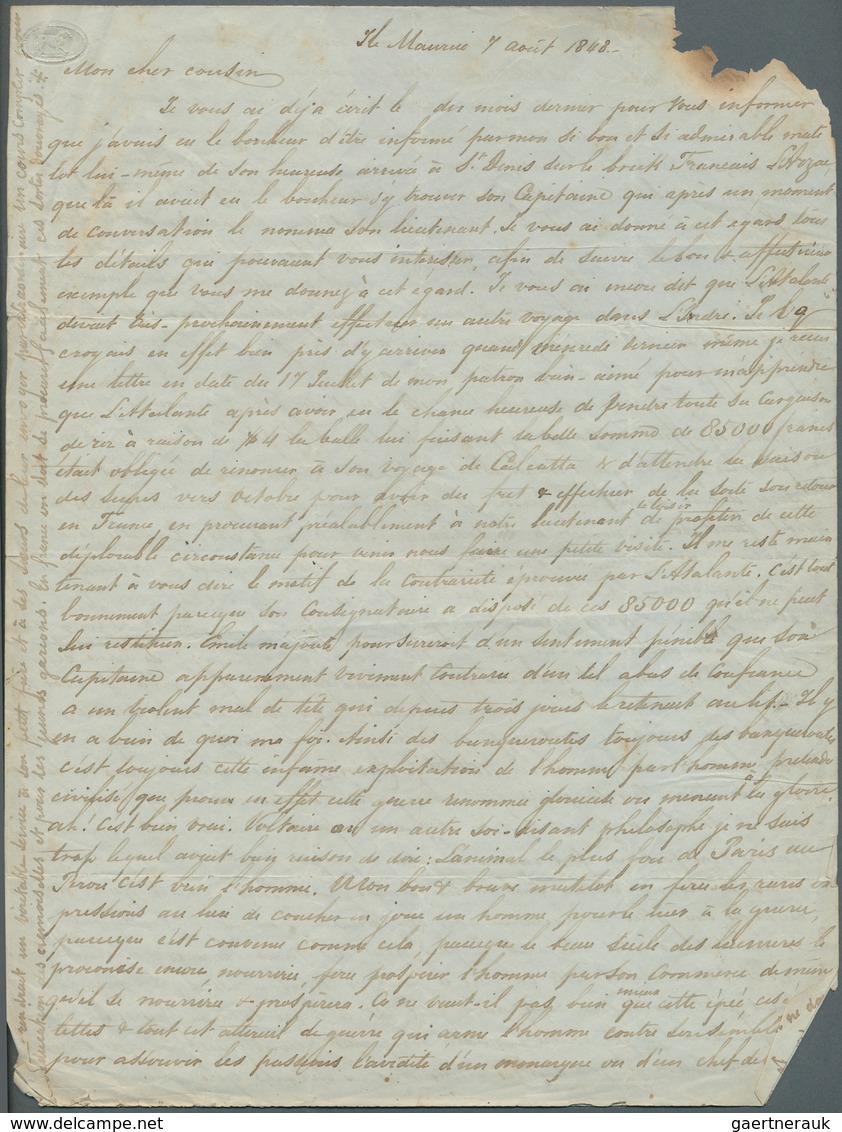 Ile Maurice 7 août 1848.-
Mon cher cousin
Je vous ai déja écrit le des mois dernier pour vous informer
que j'avais eu le bonheur d'être informé par mon si bon et si admirable mate
lot lui-même de son heureuse arrivée à St Denis sur le brick Francais
que là il avait eu le bonheur d'y trouver son Capitaine qui après un moment
de conversation le nomma son lieutenant. Je vous ai donné à cet egard tous
les détails qui pouvaient vous interesser, afin de suivre le bon &
exemple que vous me donnez à cet egard. Je vous ai encore dit que L'Atalante
devait très-prochainement effectuer un autre voyage dans L'Inde. Je
croyais en effet bien près d'y arriver quand mercredi dernier même je recus
une lettre en date du 17 Juillet de mon patron bien-aimé pour m'apprendre
que L'Atalante après avoir eu la chance heureuse de vendre toute sa Cargaison
de riz à raison de $4 la balle lui faisant la belle somme de 85000 francs
était obligée de renoncer à son voyage de Calcutta & d'attendre la saison
des sucres vers octobre pour avoir du fret & effectuer de la sorte son retour
en France, en procurant préalablement à notre lieutenant le loisir de profiter de cette
déplorable circonstance pour venir nous faire une petite visite. Il me reste main
tenant à vous dire le motif de la contrariété éprouvée par L'Atalante. C'est tout
bonnement parceque son Consignataire a disposé de ces 85000 qu'il ne peut
lui restituer. Emile m'ajoute, pour surcroit d'un sentiment pénible que son
Capitaine apparemment vivement contrarié d'un tel abus de Confiance
a un violent mal de tête qui depuis trois jours le retenait au lit.- Il y
en a bien de quoi ma foi. Ainsi des banqueroutes toujours des banqueroutes
c'est toujours cette infâme exploitation de l'homme par l'homme prétendu
civilisé, que prouve en effet cette guerre renommée glorieuse ou menant à la gloire.
ah! C'est bien vrai. Voltaire ou un autre soi-disant philosophe je ne sais
trop lequel avait bien raison de dire: L'animal le plus fou de Paris au
Pérou c'est bien l'homme. Mon bon & brave matelot en fera les rares
pressions au lieu de coucher en joue un homme, pour le tuer à la guerre,
parceque c'est convenu comme cela, parceque le beau siècle des lumières le
préconise encore, nourrira, fera prospérer l'homme par son Commerce de même
qu'il se nourrira & prospérera. Ca ne vaut-il pas bien mieux que cette épée
& tout cet attirail de guerre qui arme l'homme contre son semblable
pour assouvir les passions l'avidité d'un monarque ou d'un chef de
rendrait un véritable service à son petit frère et à ses sœurs de leur
un cours complet
Education des demoiselles et pour les jeunes garçons. En france on doit se procurer facilement ces sortes d'ouvrages.